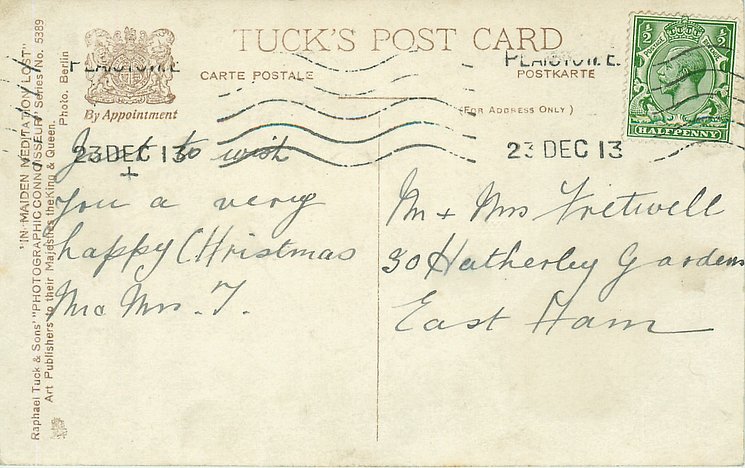 TUCK'S POST CARD
CARTE POSTALE
POSTKARTE
(FOR ADDRESS ONLY)
By Appointment
PLAISTOW. E.
PLAISTOW. E.
23 DEC 13
23 DEC 13
½ ½
HALFPENNY
"IN MAIDEN MEDITATION LOST"
Raphael Tuck & Sons' "PHOTOGRAPHIC CONNOISSEUR" Series No. 5389
Art Publishers to their Majesties the King & Queen.
Photo. Berlin
Just to wish
You a very
happy CHristmas
M & Mrs Fretwell
30 Hatherley Gardens
East Ham